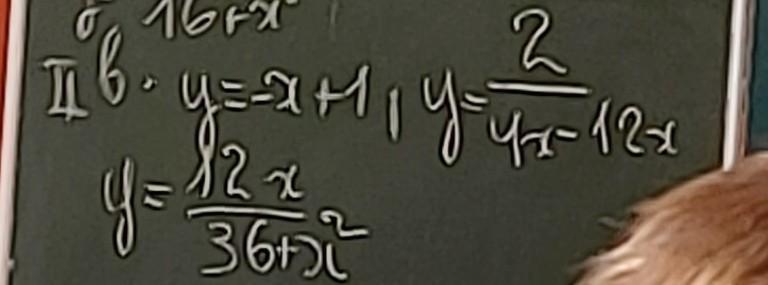 б 16+x
II в. y=-x+1, y=2/(4x-12x)
y=12x/(36+x²)